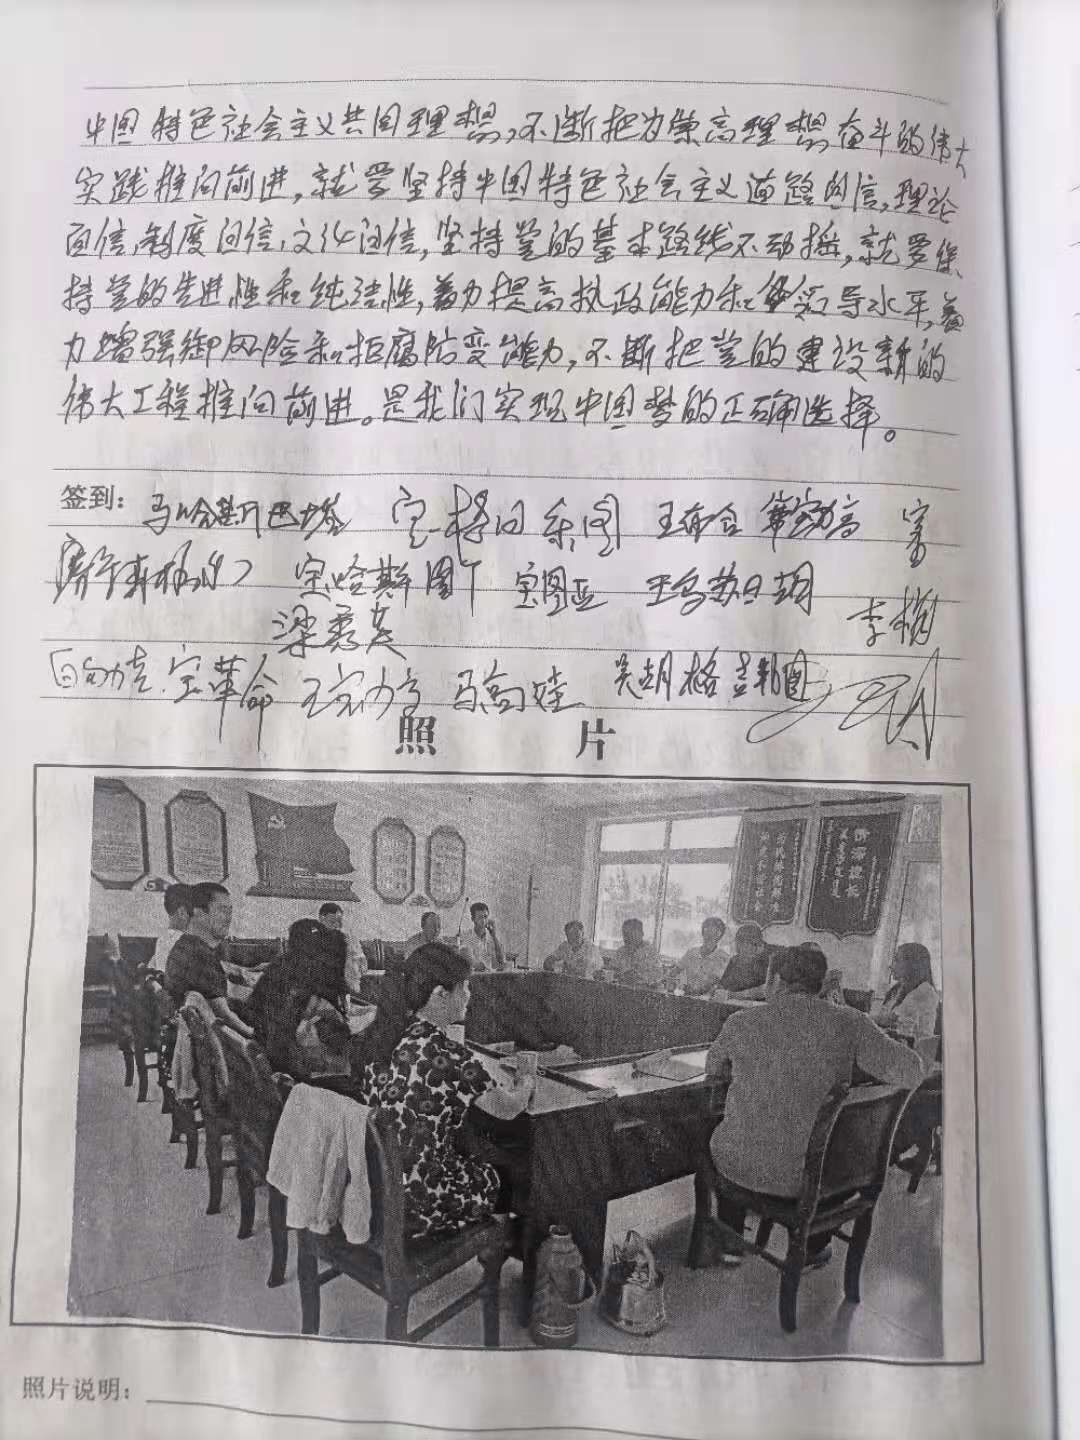 中国特色社会主义共同理想,不断把为崇高理想奋斗的伟大
实践推向前进,就要坚持中国特色社会主义道路自信,理论
自信,制度自信,文化自信,坚持党的基本路线不动摇,就要保
持党的先进性和纯洁性,着力提高执政能力和领导水平,着
力增强御风险和拒腐防变能力,不断把党的建设新的
伟大工程推向前进。是我们实现中国梦的正确选择。
签到: 马哈斯巴塔 宝格日乐图 王布合
宝哈斯图 宝图亚 王乌苏日胡
梁秀英 李梅
宝革命 吴胡格吉勒图
照 片
照片说明: